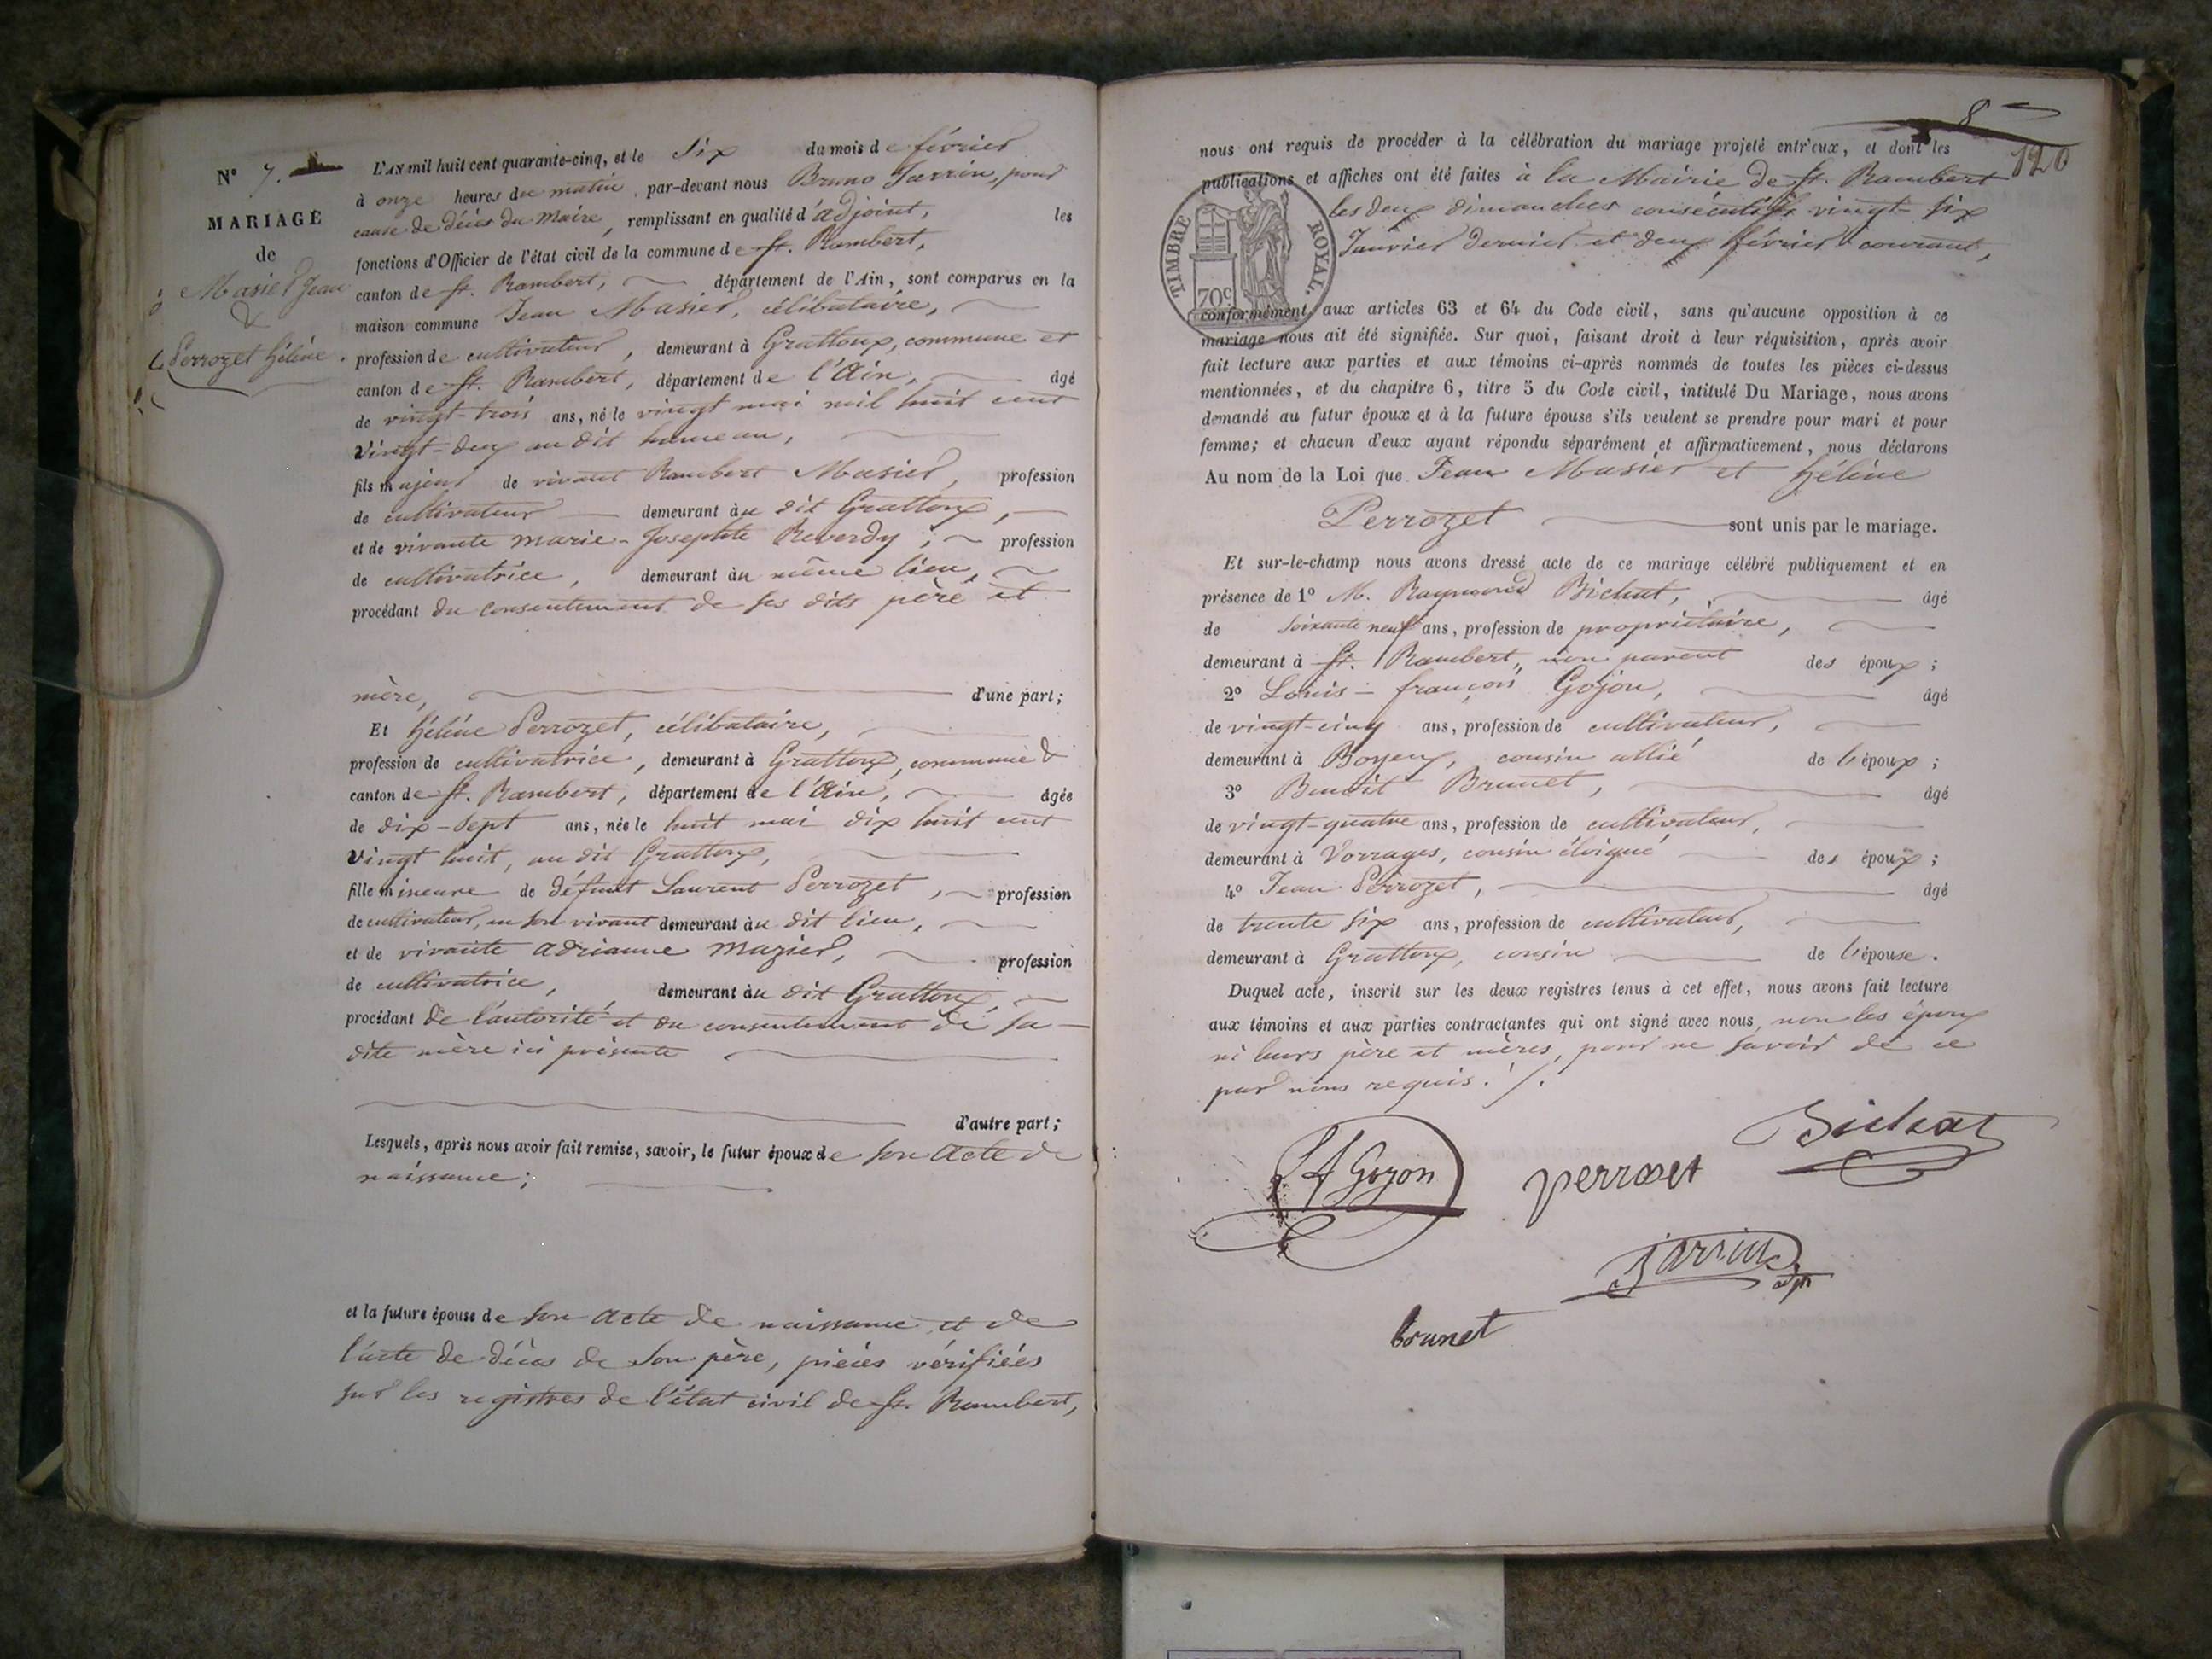 N° 7.
MARIAGE
de
Masier Jean
&
Perrozet hélène.
L'AN mil huit cent quarante-cinq, et le Six du mois de février
à onze heures du matin, par-devant nous Bruno Jarrin, pour
cause de décès du Maire, remplissant en qualité d'adjoint, les
fonctions d'Officier de l'état civil de la commune de St. Rambert,
canton de St. Rambert, département de l'Ain, sont comparus en la
maison commune Jean Masier, célibataire,
profession de cultivateur, demeurant à Grattoux, commune et
canton de St. Rambert, département de l'Ain, âgé
de vingt-trois ans, né le vingt mai mil huit cent
vingt-deux au dit hameau,
fils majeur de vivant Rambert Masier, profession
de cultivateur demeurant au dit Grattoux,
et de vivante marie-Josephte Reverdy, profession
de cultivatrice, demeurant au même lieu,
procédant du consentement de ses dits père et
mère, d'une part;
Et hélène Perrozet, célibataire,
profession de cultivatrice, demeurant à Grattoux, commune &
canton de St. Rambert, département de l'Ain, âgée
de dix-sept ans, née le huit mai dix huit cent
vingt huit, au dit Grattoux,
fille mineure de défunt Laurent Perrozet, profession
de cultivateur, en son vivant demeurant au dit lieu,
et de vivante adrianne mazier, profession
de cultivatrice, demeurant au dit Grattoux,
procédant de l'autorité et du consentement de sa
dite mère ici présente
d'autre part;
Lesquels, après nous avoir fait remise, savoir, le futur époux de son acte de
naissance;
et la future épouse de son acte de naissance et de
l'acte de décès de son père, pièces vérifiées
sur les registres de l'état civil de St. Rambert,
8
120
nous ont requis de procéder à la célébration du mariage projeté entr'eux, et dont les
publications et affiches ont été faites à la Mairie de St. Rambert
les deux dimanches consécutifs vingt-six
Janvier dernier et deux février courant,
TIMBRE ROYAL.
70c
conformément aux articles 63 et 64 du Code civil, sans qu'aucune opposition à ce
mariage nous ait été signifiée. Sur quoi, faisant droit à leur réquisition, après avoir
fait lecture aux parties et aux témoins ci-après nommés de toutes les pièces ci-dessus
mentionnées, et du chapitre 6, titre 5 du Code civil, intitulé Du Mariage, nous avons
demandé au futur époux et à la future épouse s'ils veulent se prendre pour mari et pour
femme; et chacun d'eux ayant répondu séparément et affirmativement, nous déclarons
Au nom de la Loi que Jean Masier et hélène
Perrozet sont unis par le mariage.
Et sur-le-champ nous avons dressé acte de ce mariage célébré publiquement et en
présence de 1° M. Raymond Bichat, âgé
de soixante neuf ans, profession de propriétaire,
demeurant à St. Rambert, non parent des époux;
2° Louis-françois Gojon, âgé
de vingt-cinq ans, profession de cultivateur,
demeurant à Boyeux, cousin allié de l'époux;
3° Benoit Brunet, âgé
de vingt-quatre ans, profession de cultivateur,
demeurant à Vorrages, cousin éloigné des époux;
4° Jean Perrozet, âgé
de trente six ans, profession de cultivateur,
demeurant à Grattoux, cousin de l'épouse.
Duquel acte, inscrit sur les deux registres tenus à cet effet, nous avons fait lecture
aux témoins et aux parties contractantes qui ont signé avec nous, non les époux
ni leurs père et mères, pour ne savoir de ce
par nous requis. /.
Bichat
LF Gojon
perroset
Jarrin
adjt
brunet